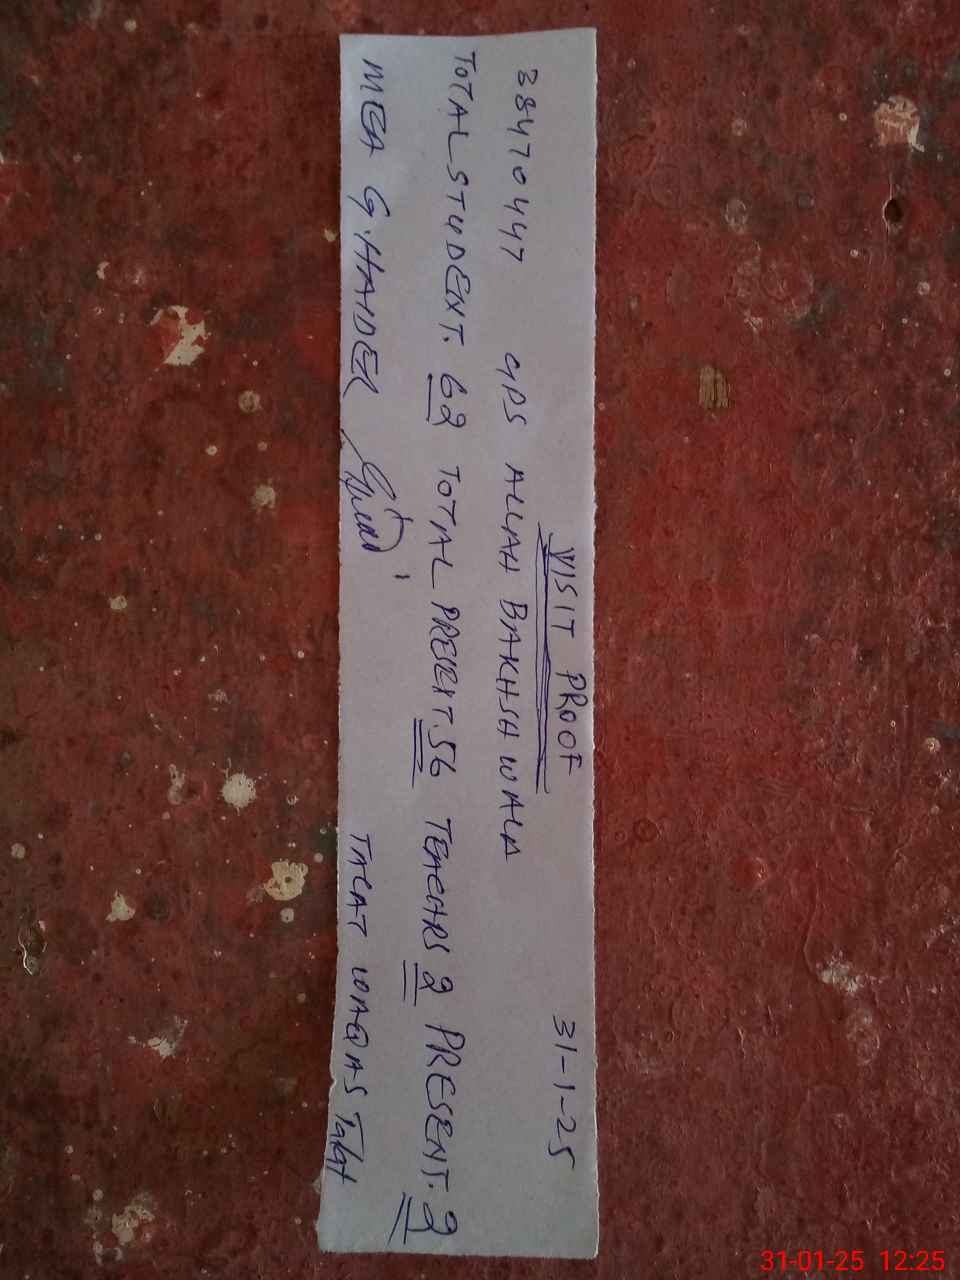 VISIT PROOF 31-1-25
38470447 GPS ALLAH BAKHSH WALA
TOTAL STUDENT. 62 TOTAL PRESENT. 56 TEACHRS 2 PRESENT. 2
MEA G.HAIDER TALAT WAQAS Talat
31-01-25 12:25